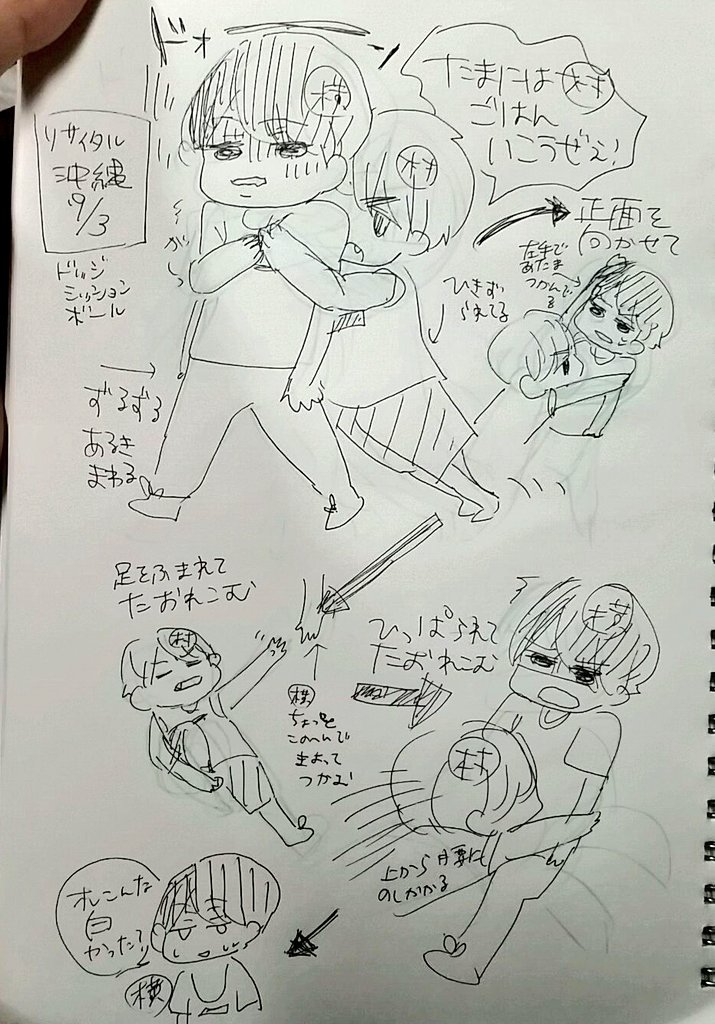 ドォ
横
たまには村
ごはん
いこうぜぇ!
リサイタル
沖縄
9/3
ドッジ
ミッション
ボール
村
正面を
向かせて
左手で
あたま
つかんでる
ひきず
られてる
ずるずる
あるき
まわる
足をふまれて
たおれこむ
村
横
ちょっと
このへんで
まよって
つかむ
ひっぱられて
たおれこむ
横
村
上から腰に
のしかかる
オレこんな
白
かった?
横